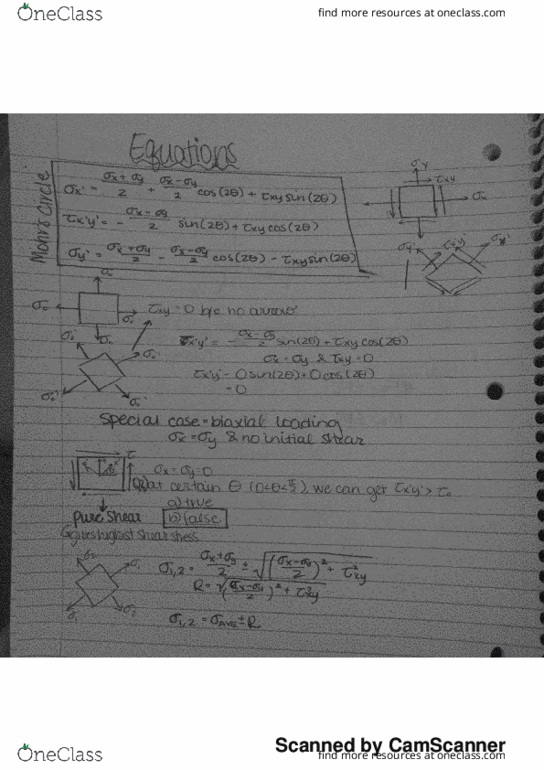 OneClass
find more resources at oneclass.com
Equations
Mohr's Circle
σx' = σx + σy / 2 + σx - σy / 2 cos(2θ) + τxy sin(2θ)
τx'y' = - σx - σy / 2 sin(2θ) + τxy cos(2θ)
σy' = σx + σy / 2 - σx - σy / 2 cos(2θ) - τxy sin(2θ)
σy
τxy
σx
σy'
τx'y'
σx'
σo
σo
σo
σo
τxy = 0 b/c no arrows
τx'y' = - σx - σy / 2 sin(2θ) + τxy cos(2θ)
σx = σy & τxy = 0
τx'y' = 0 sin(2θ) + 0 cos(2θ)
= 0
special case = biaxial loading
σx = σy & no initial shear
σx = σy = 0
at certain θ (0<θ<π/2), we can get τx'y' > τo
a) true
b) false
pure shear
Gives highest shear stress
σ2
σ1
σ1
σ2
σ1,2 = σx + σy / 2 ± √(σx - σy / 2)² + τ²xy
R = √(σx - σy / 2)² + τ²xy
σ1,2 = σAVE ± R
Scanned by CamScanner
OneClass
find more resources at oneclass.com